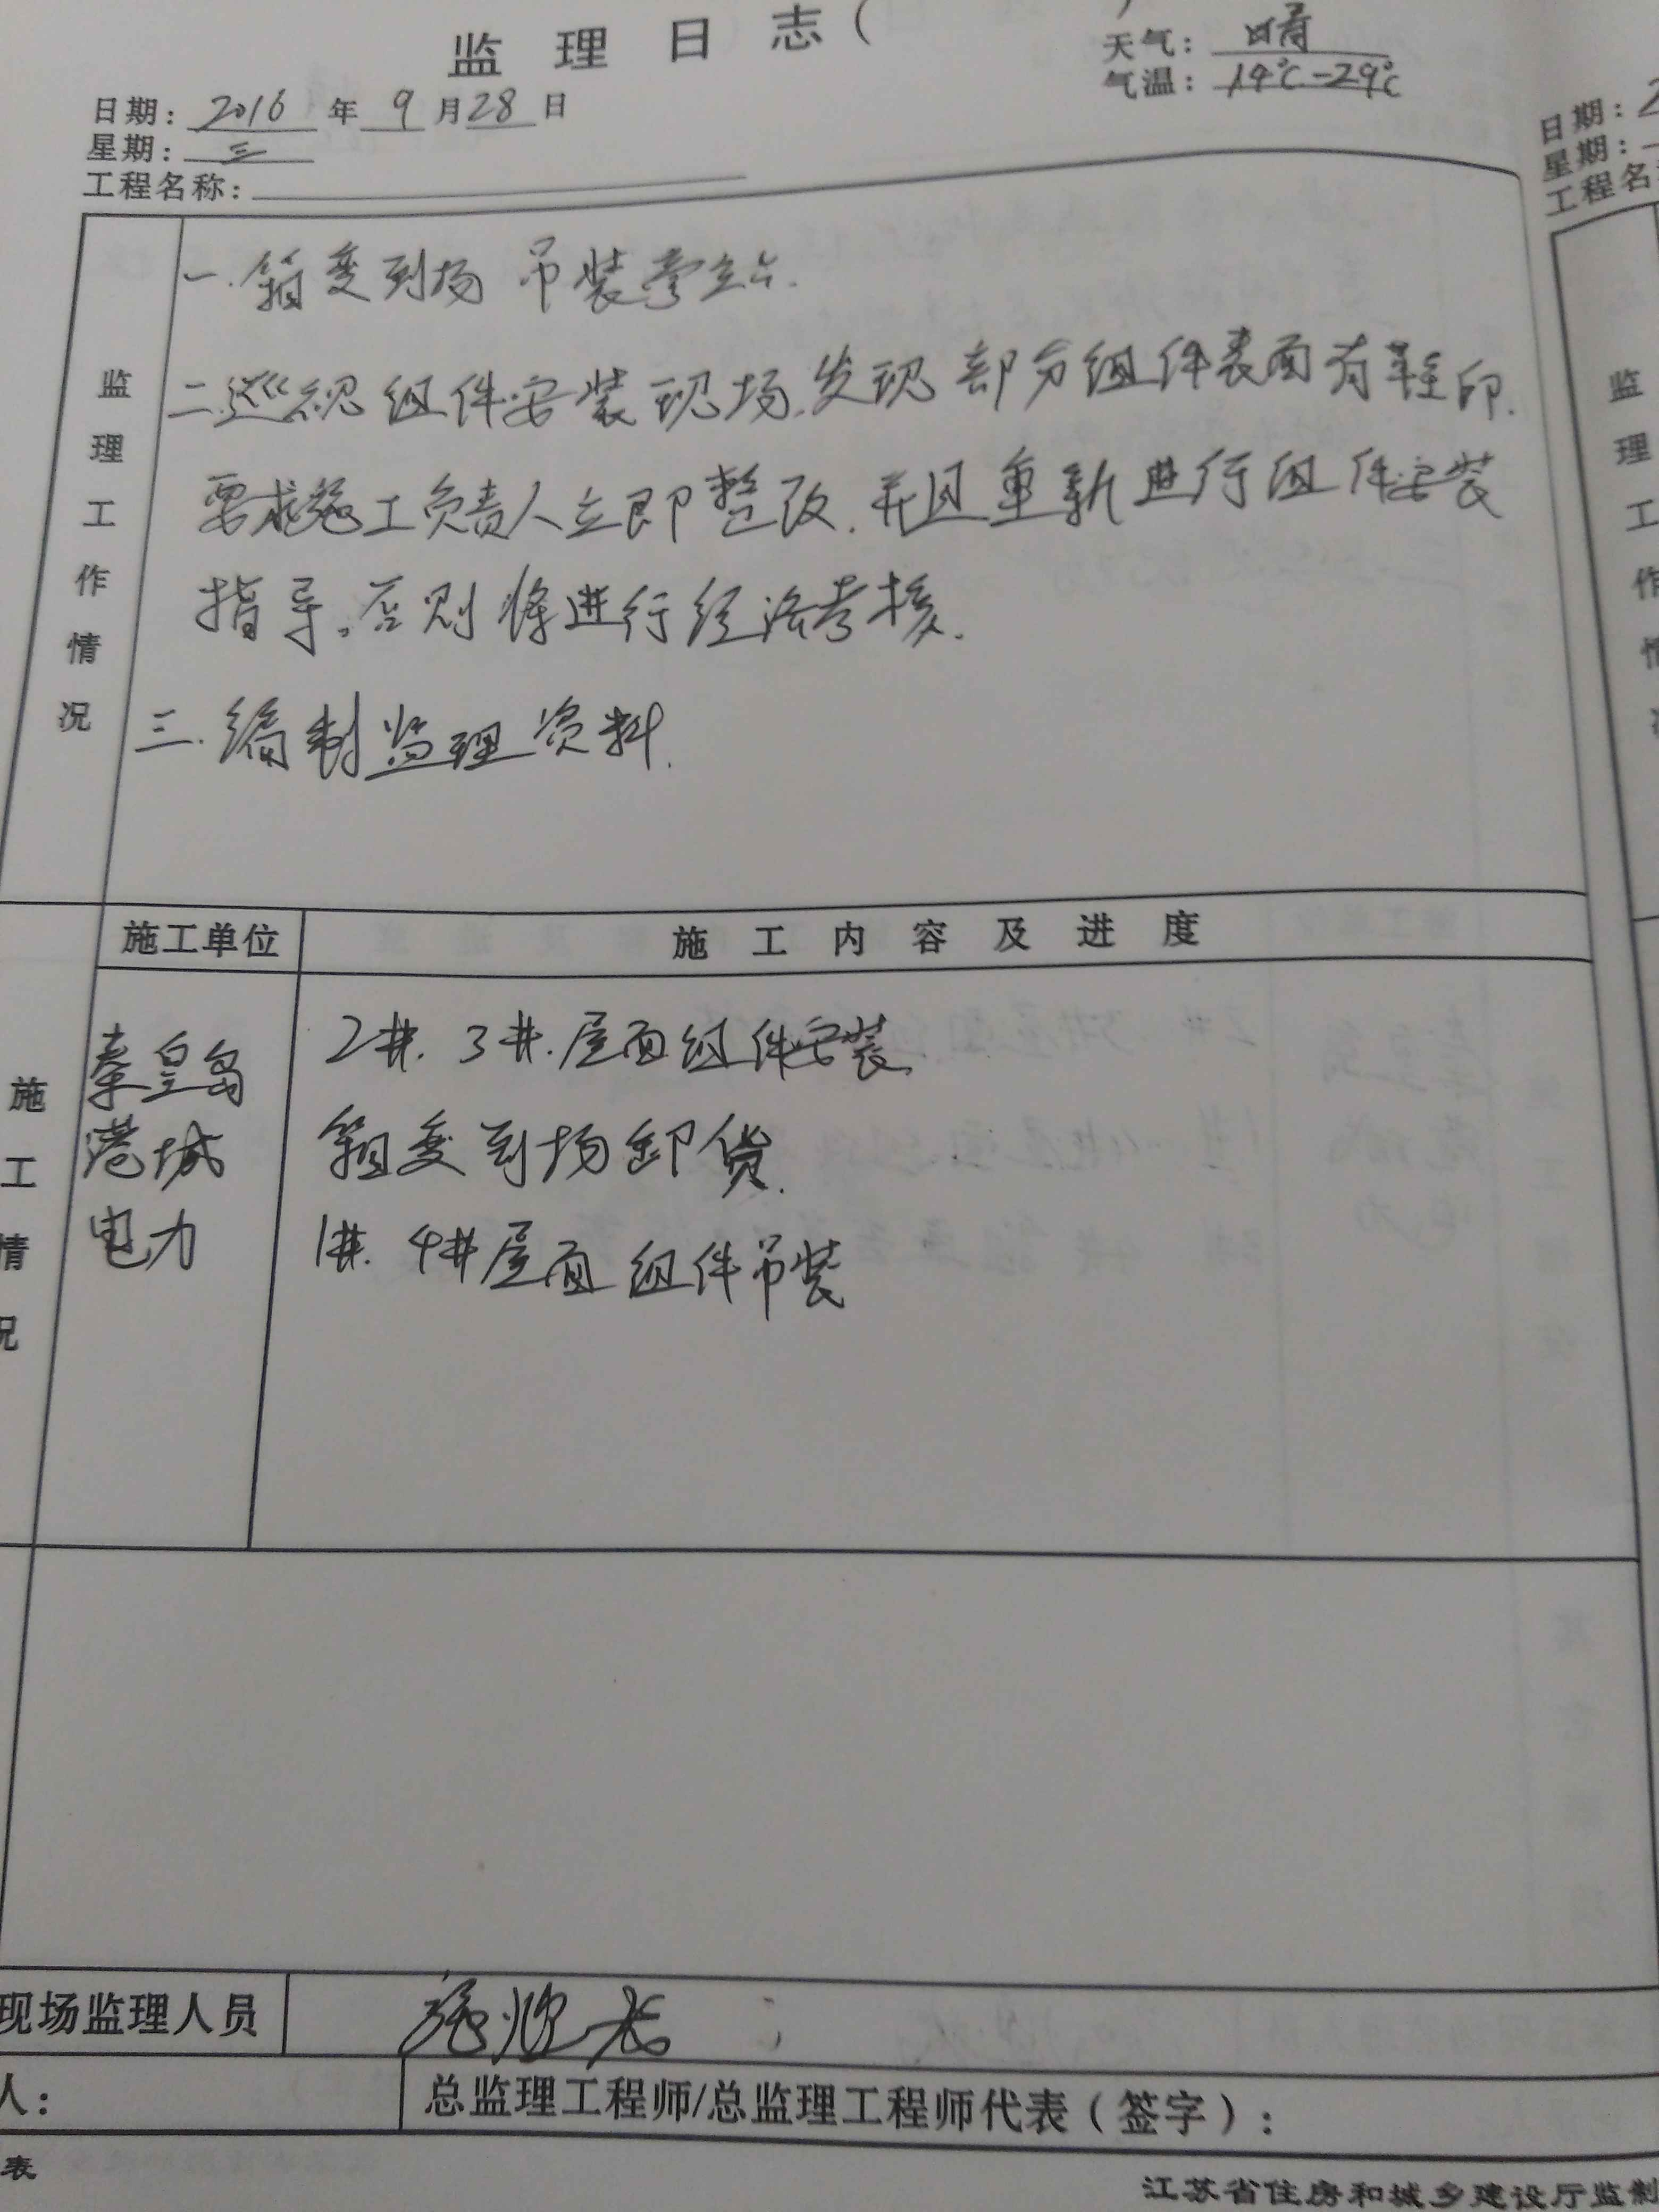 监理日志(
)
天气: 晴
气温: 14℃-29℃
日期: 2016 年 9 月 28 日
星期: 三
工程名称:
监理工作情况
一. 箱变到场 吊装旁站.
二.巡视组件安装现场.发现部分组件表面有鞋印.
要求施工负责人立即整改.并且重新进行组件安装
指导。否则将进行经济考核.
三.编制监理资料.
施工单位
施工内容及进度
施工情况
秦皇岛
港城
电力
2#. 3#.屋面组件安装.
箱变到场卸货.
1#. 4#屋面组件吊装
现场监理人员
人:
总监理工程师/总监理工程师代表(签字):
表
江苏省住房和城乡建设厅监制
日期: 2
星期:
工程名
监理工作情